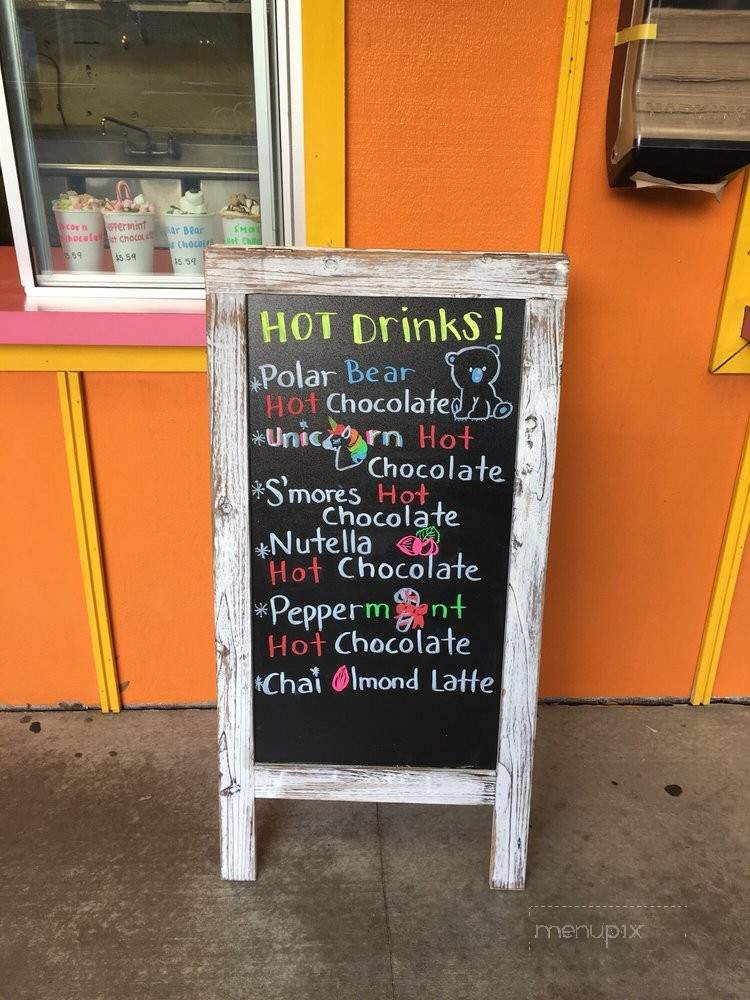 HOT Drinks!
*Polar Bear
Hot Chocolate
*Unicorn Hot
Chocolate
*S'mores Hot
Chocolate
*Nutella
Hot Chocolate
*Peppermint
Hot Chocolate
*Chai Almond Latte
Peppermint
Hot Chocolate
$5.59
Bear
$5.59
S'mores
Hot
menupix